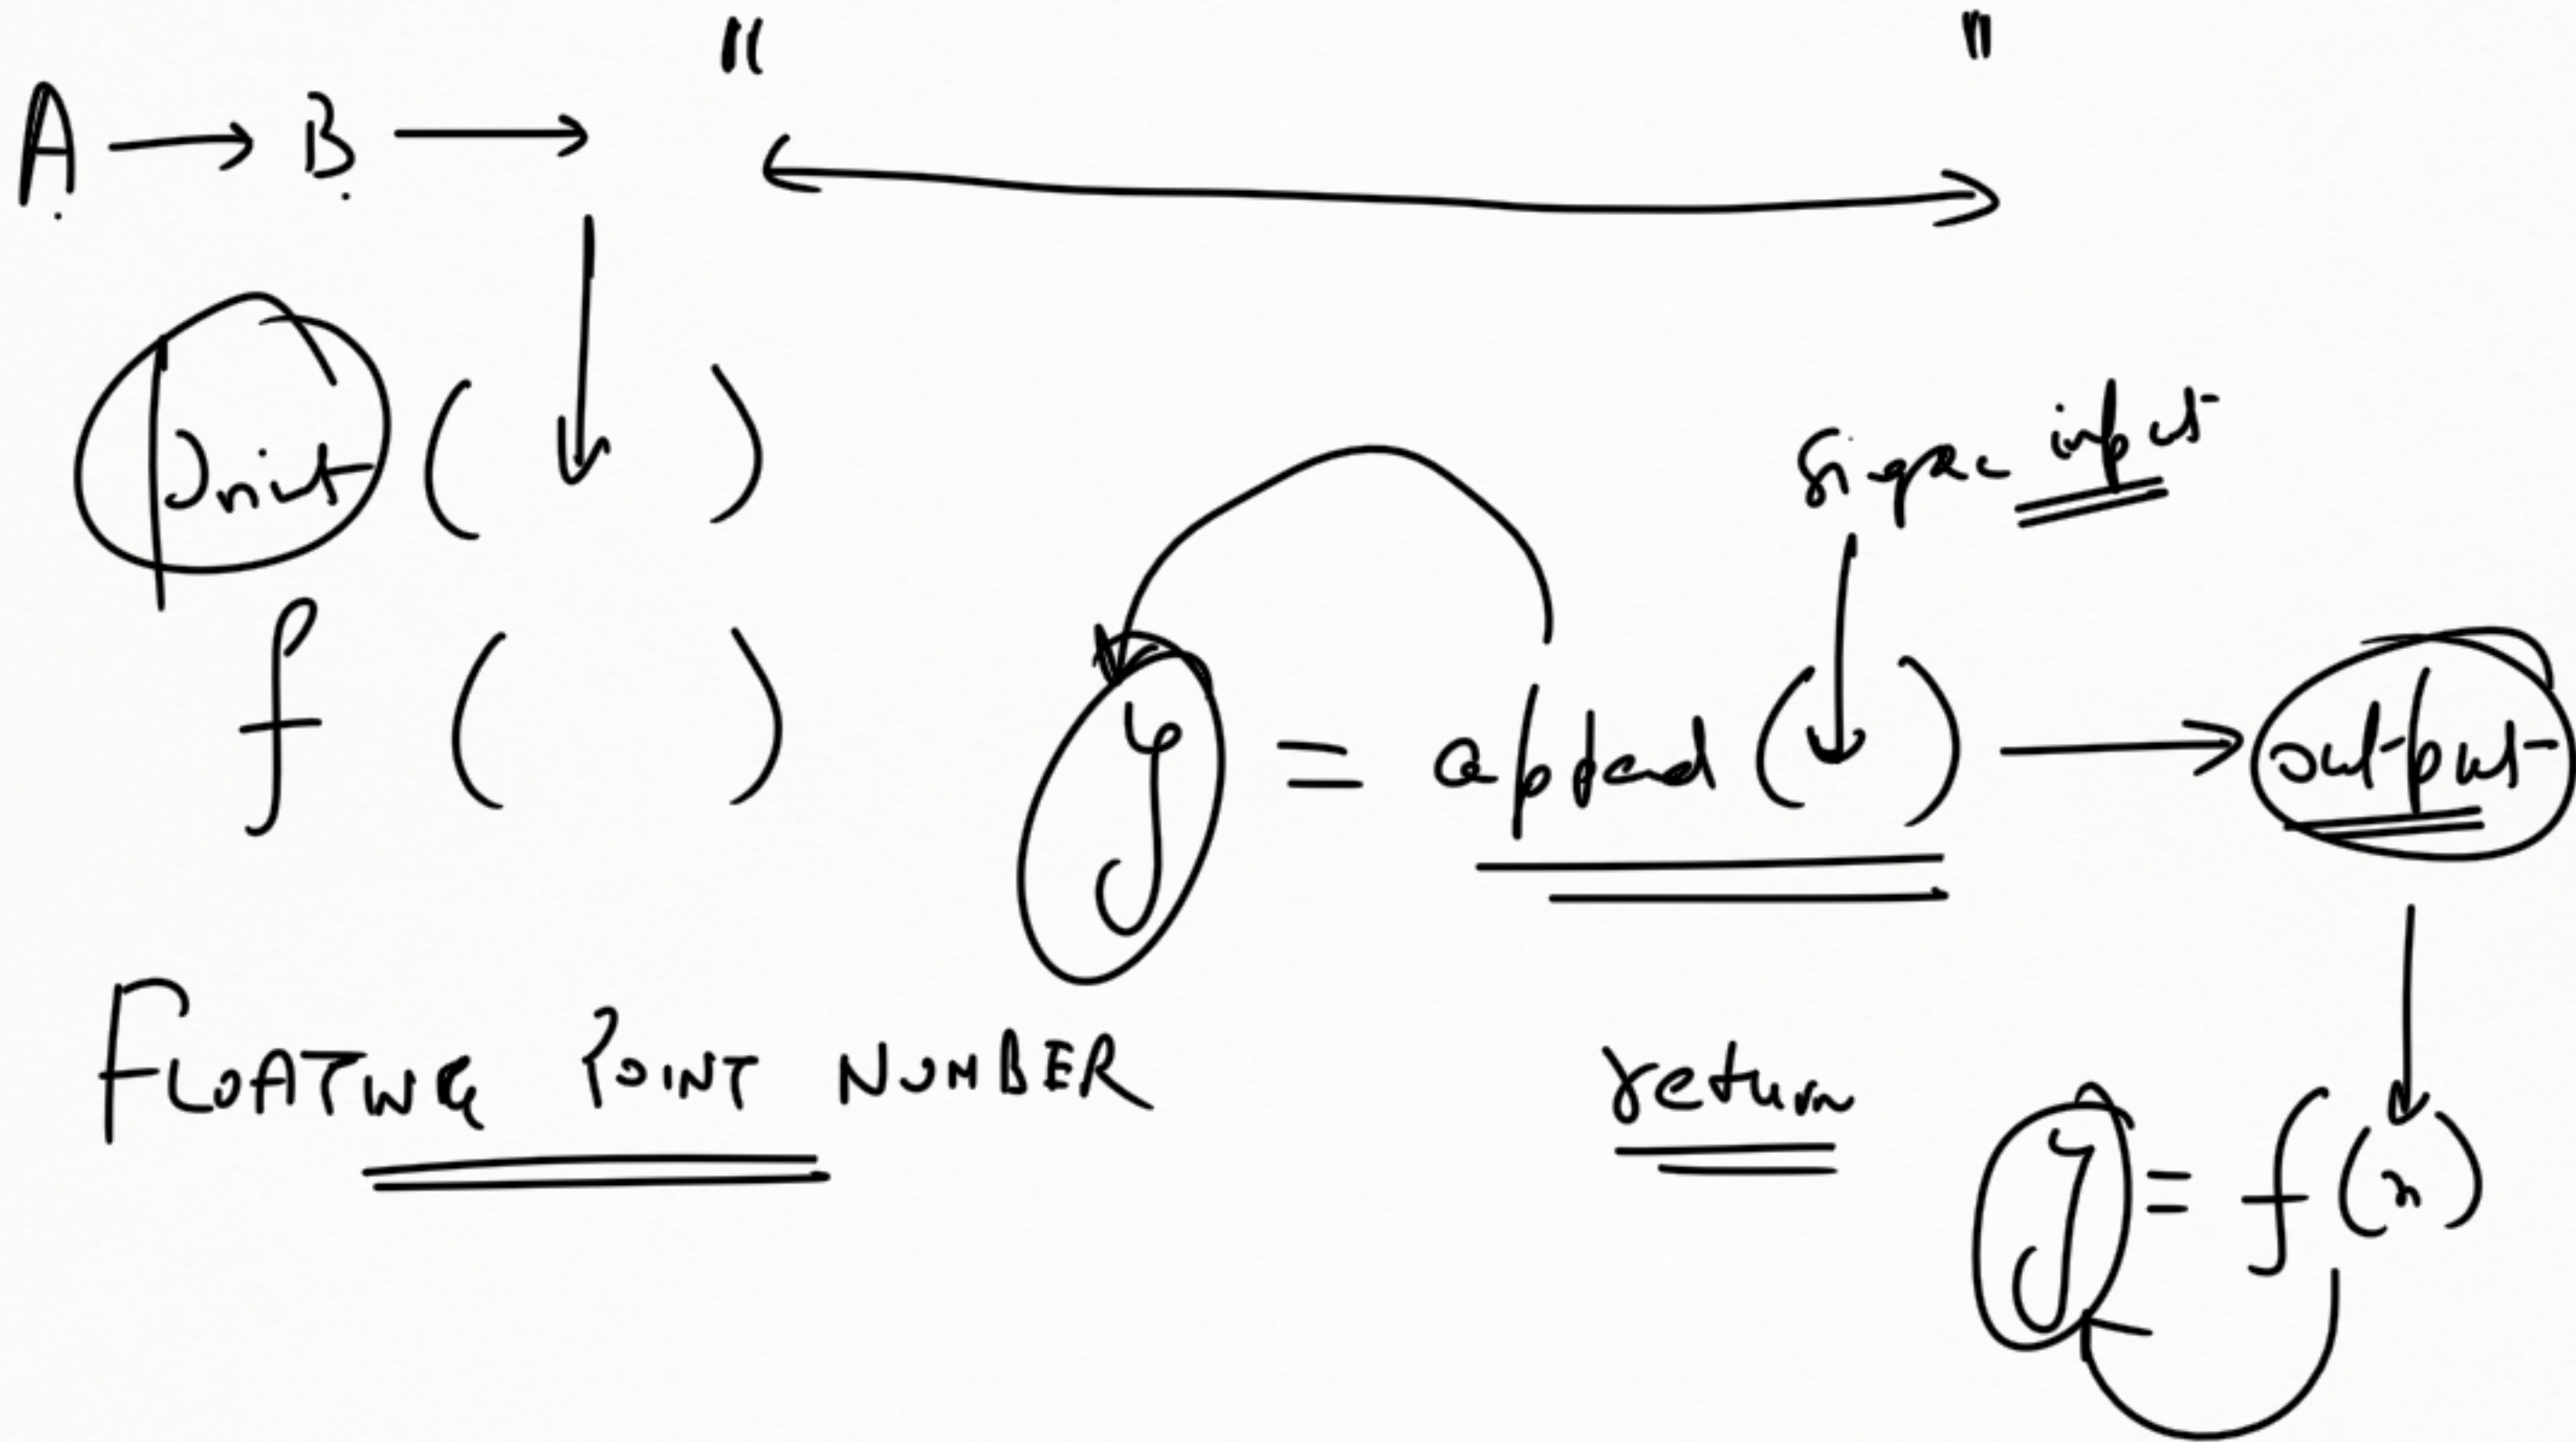 " "
A → B →
print ( )
input
f ( )
y = append ( ) → output
FLOATING POINT NUMBER
return
y = f(x)